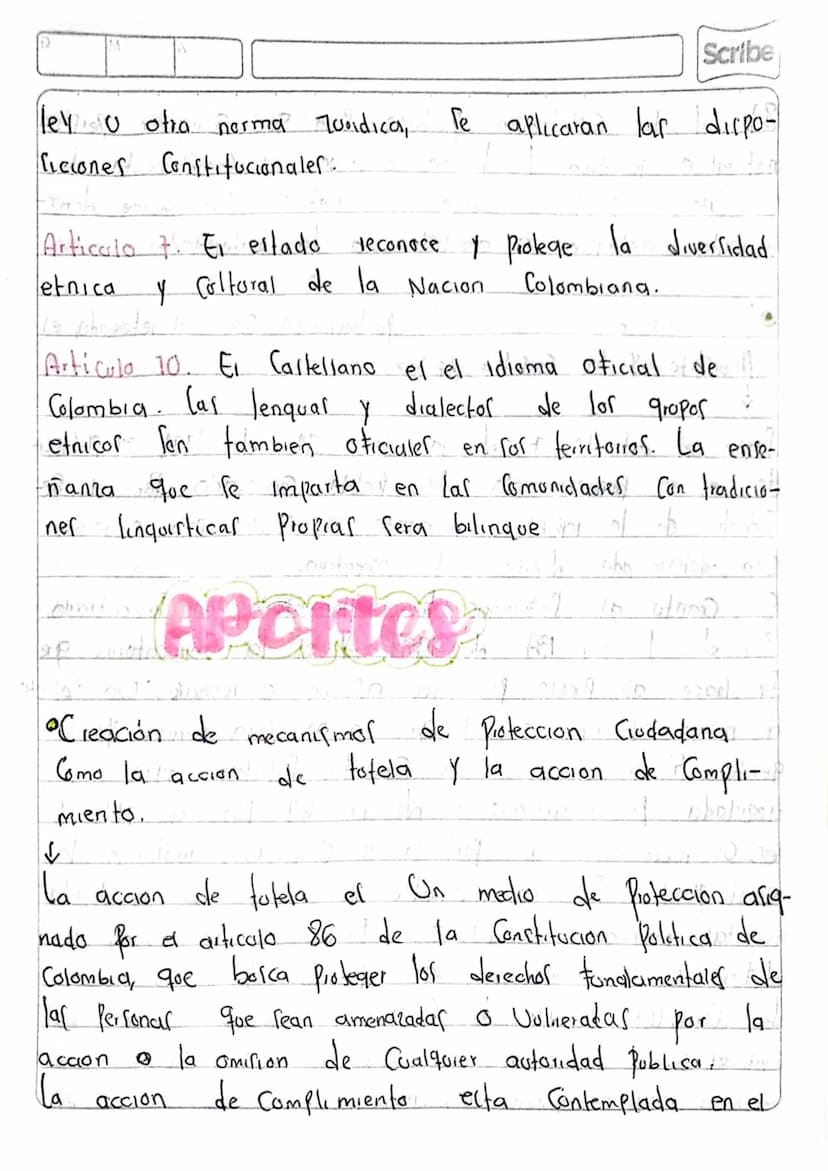 D M A
Scribe
ley u otra norma Juridica, Se aplicaran las dispo-
siciones Constitucionales.
Articulo 7. El estado reconoce y protege la diversidad
etnica y Cultural de la Nacion Colombiana.
Articulo 10. El Castellano es el idioma oficial de
Colombia. Las lenguas y dialectos de los grupos
etnicos Son tambien oficiales en sus territorios. La ense-
ñanza que se imparta en las Comunidades Con tradicio-
nes linguisticas Propias sera bilingue
APortes
Creación de mecanismos de Proteccion Ciudadana
Como la accion de tutela y la accion de Compli-
miento.
↓
La accion de tutela es Un medio de Proteccion asig-
nado por el articulo 86 de la Constitucion Politica de
Colombia, que busca Proteger los derechos fundamentales de
las Personas que sean amenazadas o Vulneradas por la
accion o la omision de Cualquier autoridad Publica.
La accion de Complimiento esta Contemplada en el